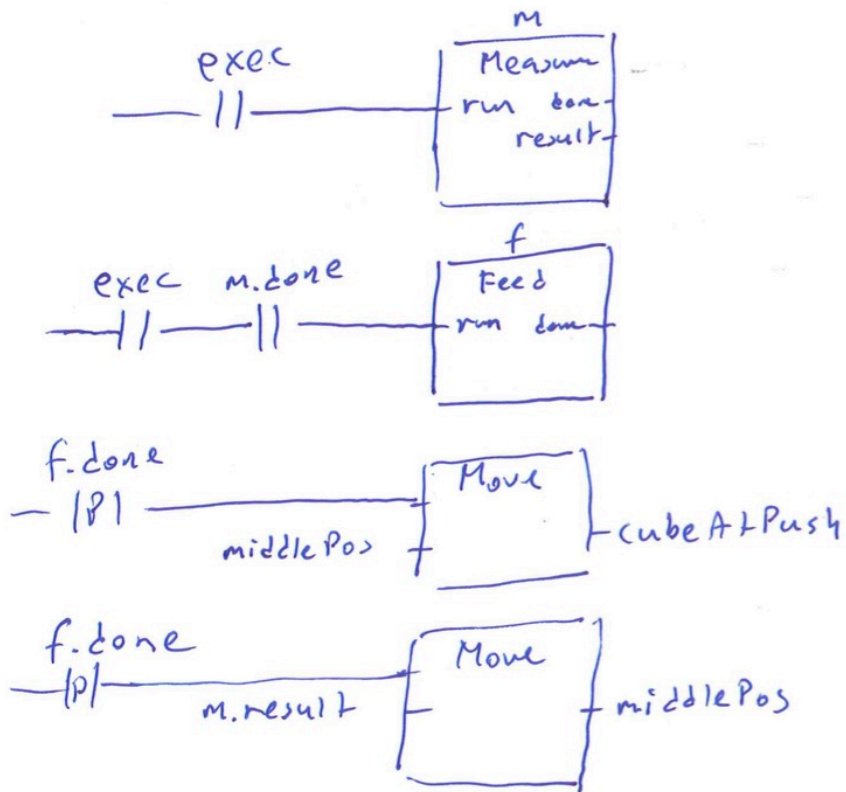 M
exec
Measure
run done
result
f
exec M.done
Feed
run done
f.done
|P|
Move
middlePos
cubeAtPush
f.done
|P|
Move
m.result
middlePos